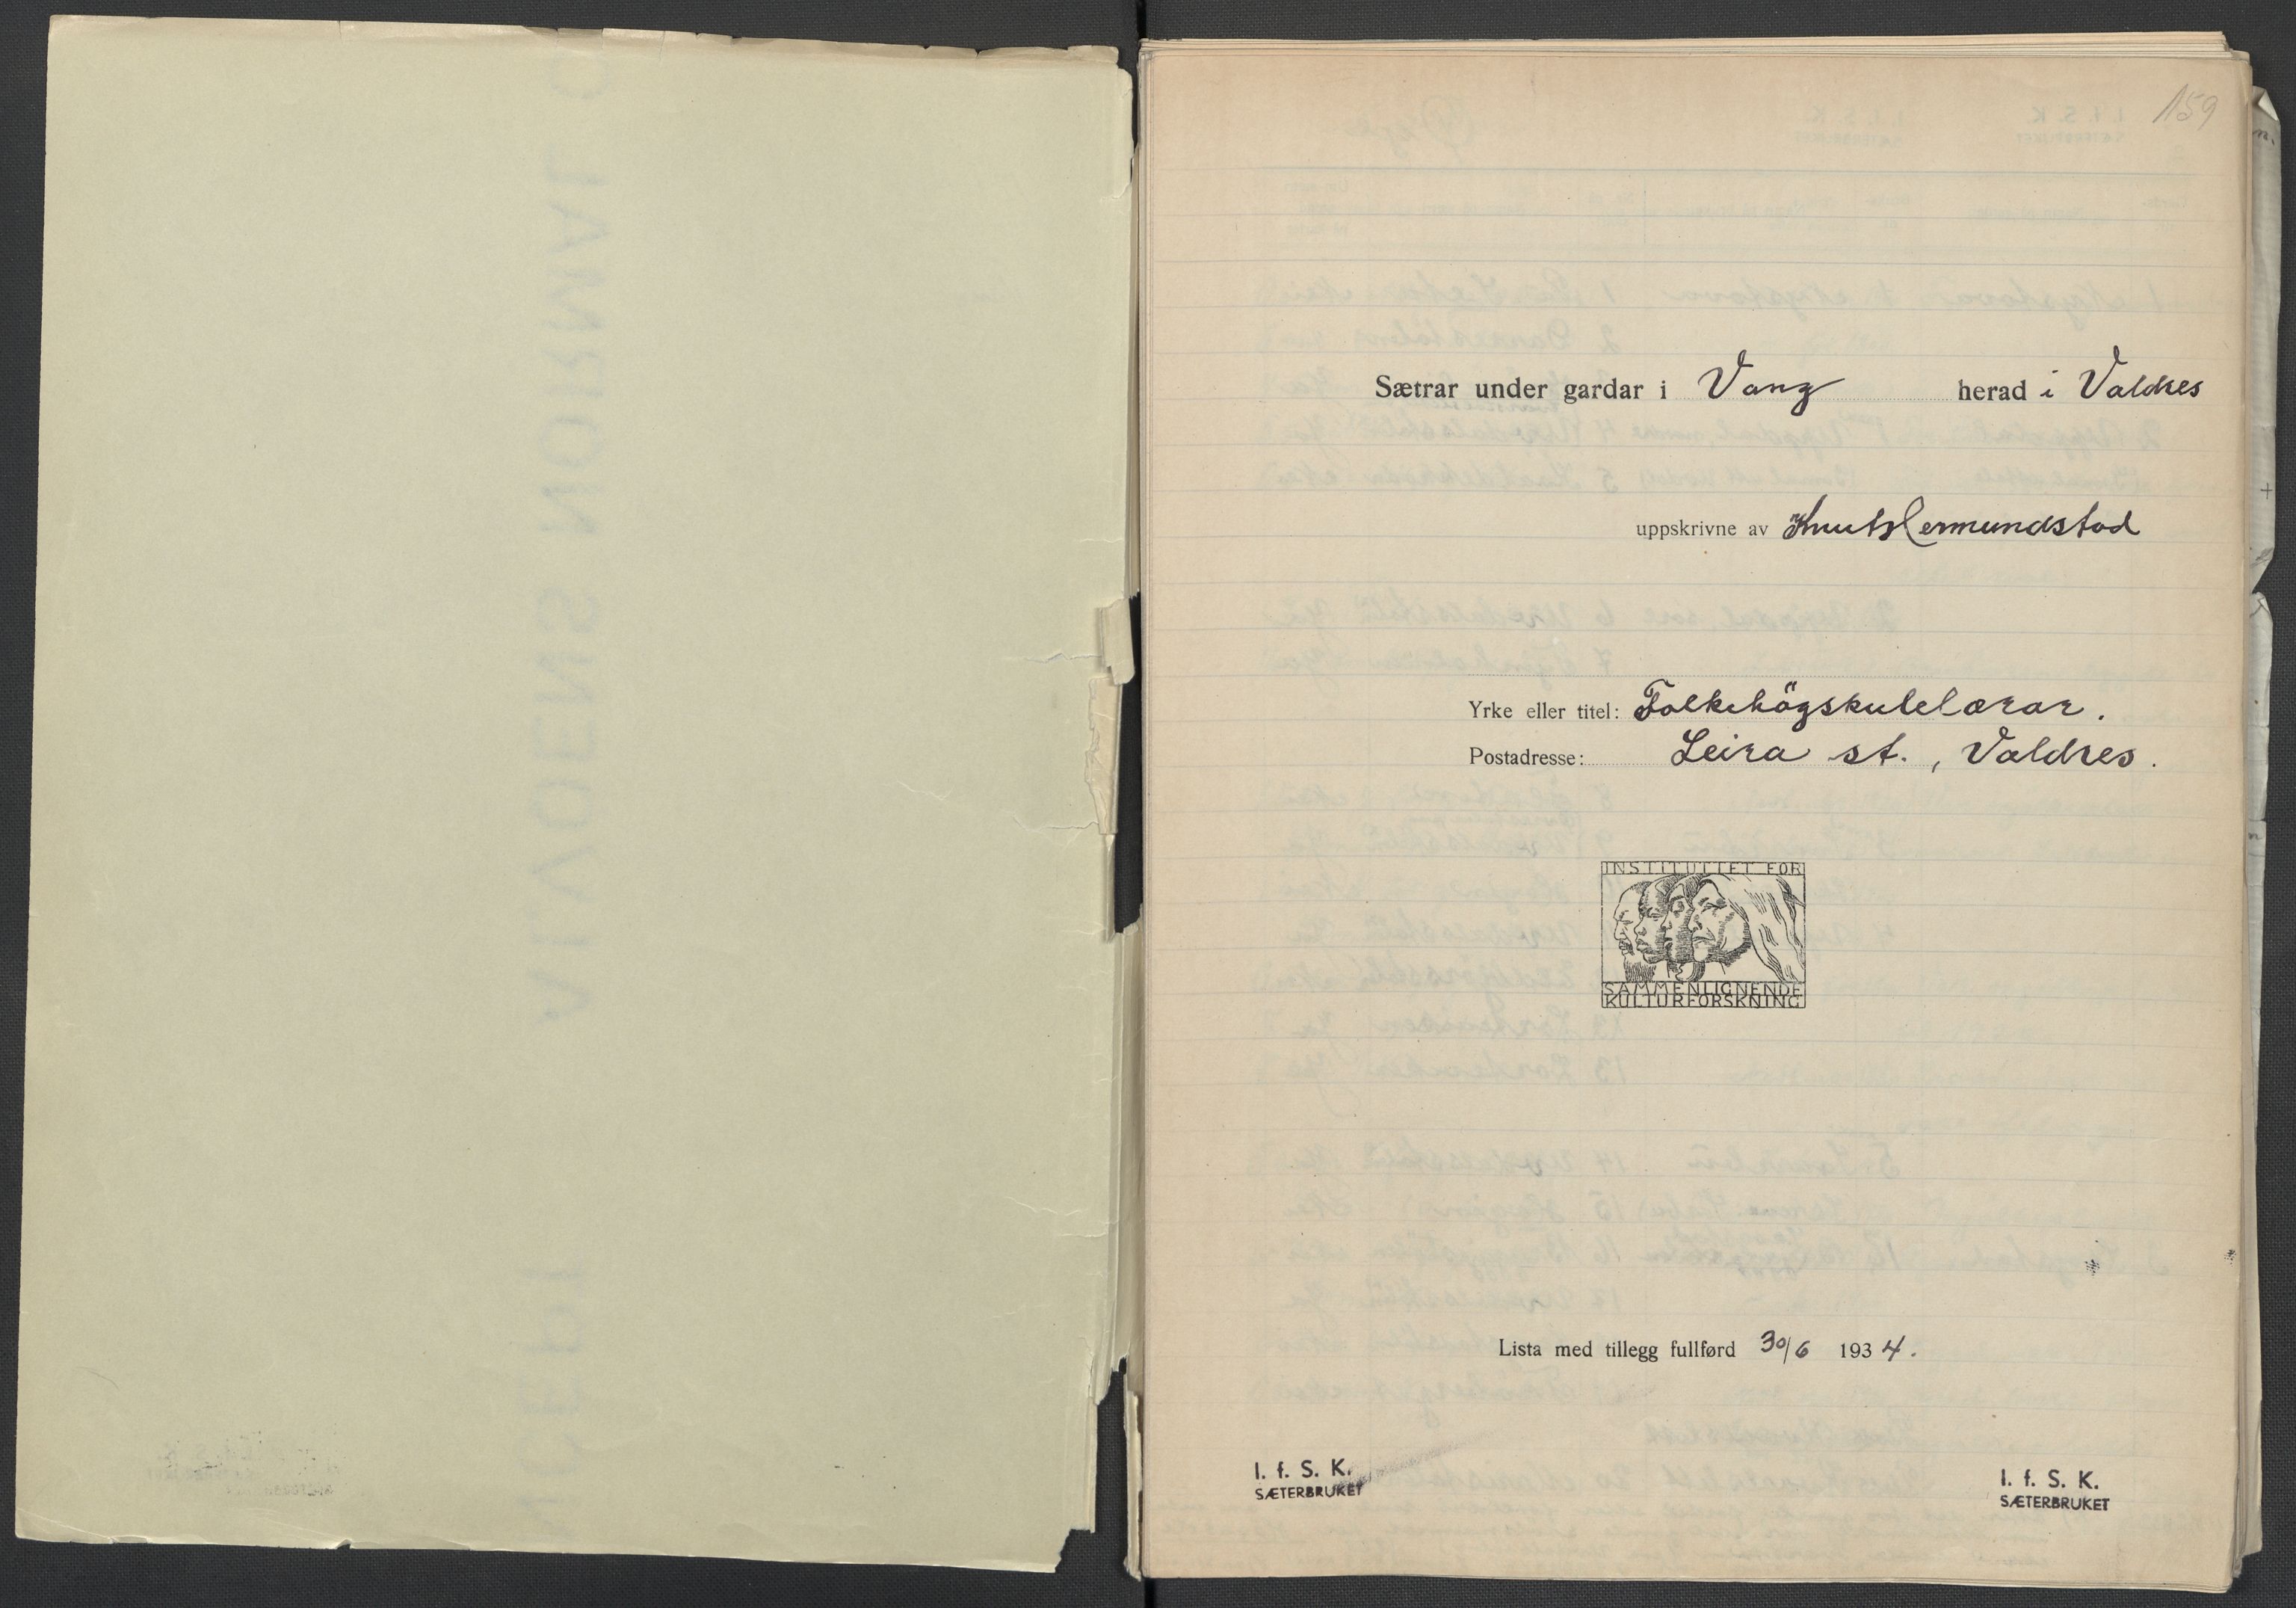 159
Sætrar under gardar i Vang herad i Valdres
uppskrivne av Knut Hermundstad
Yrke eller titel: Folkehögskulelærar.
Postadresse: Leira st., Valdres.
INSTITUTTET FOR
SAMMENLIGNENDE
KULTURFORSKNING
Lista med tillegg fullførd 30/6 1934.
I. f. S. K.
SÆTERBRUKET
I. f. S. K.
SÆTERBRUKET